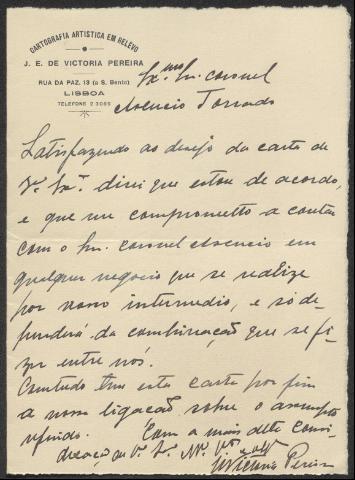 CARTOGRAFIA ARTISTICA EM RELEVO
J. E. DE VICTORIA PEREIRA
RUA DA PAZ, 13 (a S. Bento)
LISBOA
TELEFONE 2 3069
Ex.mo Sr. coronel
Asencio Torrado
Satisfazendo ao desejo da carta de
V.ª Ex.ª direi que estou de acordo,
e que me comprometto a contar
com o Sr. coronel Asencio em
qualquer negocio que se realize
por nosso intermedio, e só de-
penderá da combinação que se fi-
zer entre nós.
Comtudo tem esta carta por fim
a nossa ligação sobre o assumpto
referido. Com a mais alta consi-
deração de V. Ex.
Victoria Pereira